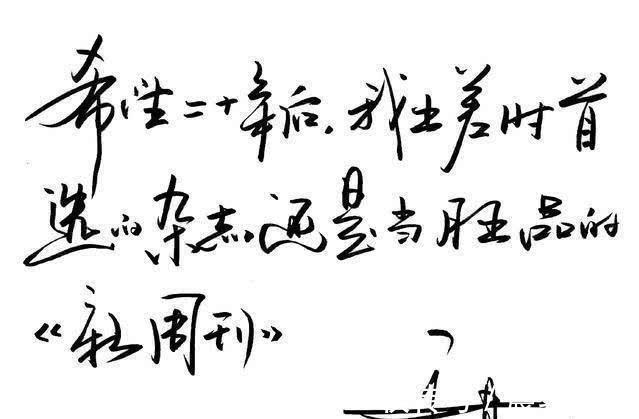 希望二十年后,我出差时首
选的杂志还是当月出品的
《新周刊》